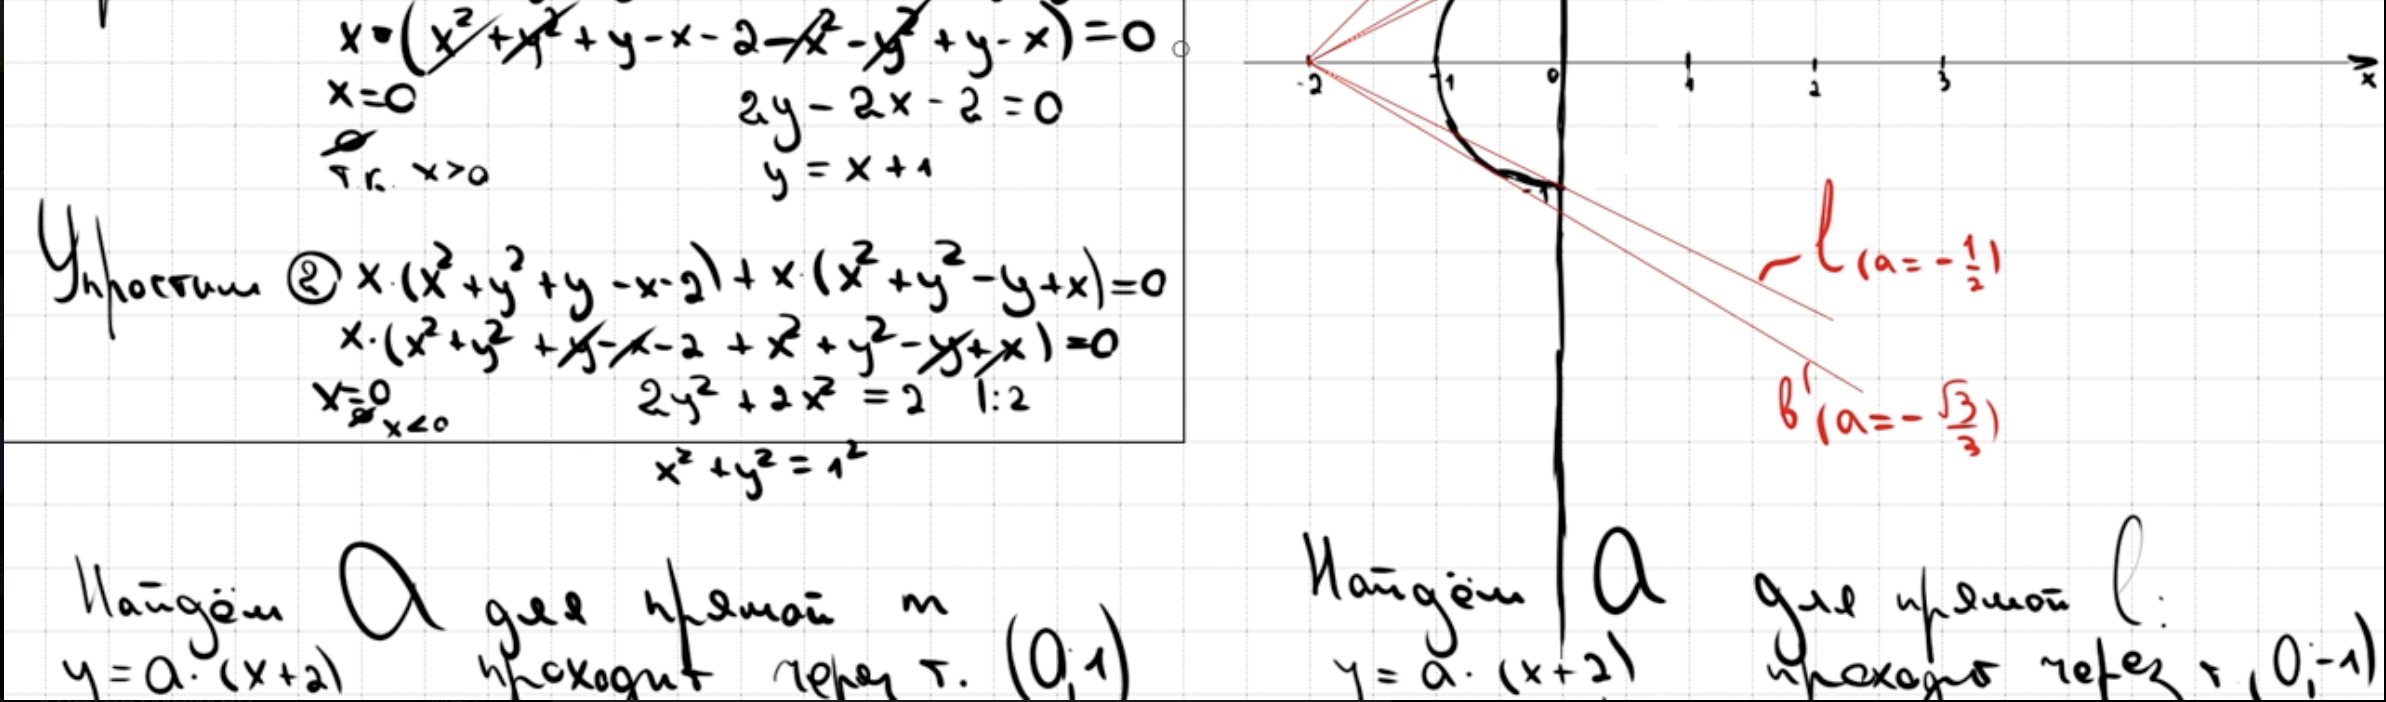 x·(x²+y²+y-x-2-x²-y²+y-x)=0
x=0
∅
т.к. x>0
2y-2x-2=0
y=x+1
Упростим ② x·(x²+y²+y-x-2)+x·(x²+y²-y+x)=0
x·(x²+y²+y-x-2+x²+y²-y+x)=0
x=0
∅ x<0
2y²+2x²=2 |:2
x²+y²=1²
Найдём a для прямой m
y=a·(x+2) проходит через т. (0;1)
-2 -1 0 1 2 3 x
-1
l (a=-1/2)
в (a=-√3/3)
Найдём a для прямой l:
y=a·(x+2) проходит через т. (0;-1)